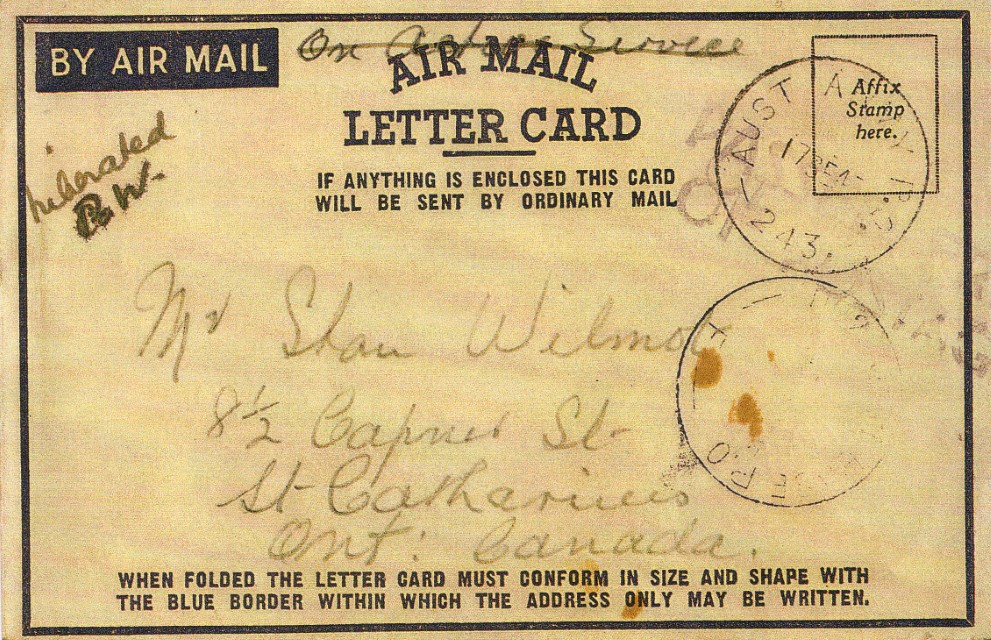 BY AIR MAIL
On Active Service
AIR MAIL
LETTER CARD
IF ANYTHING IS ENCLOSED THIS CARD
WILL BE SENT BY ORDINARY MAIL
Affix
Stamp
here.
liberated
P.W.
AUST ARMY P.O.
17 SE 4
243.
Mr Stan Wilmot
8½ Capner St
St Catharines
Ont: Canada.
WHEN FOLDED THE LETTER CARD MUST CONFORM IN SIZE AND SHAPE WITH
THE BLUE BORDER WITHIN WHICH THE ADDRESS ONLY MAY BE WRITTEN.